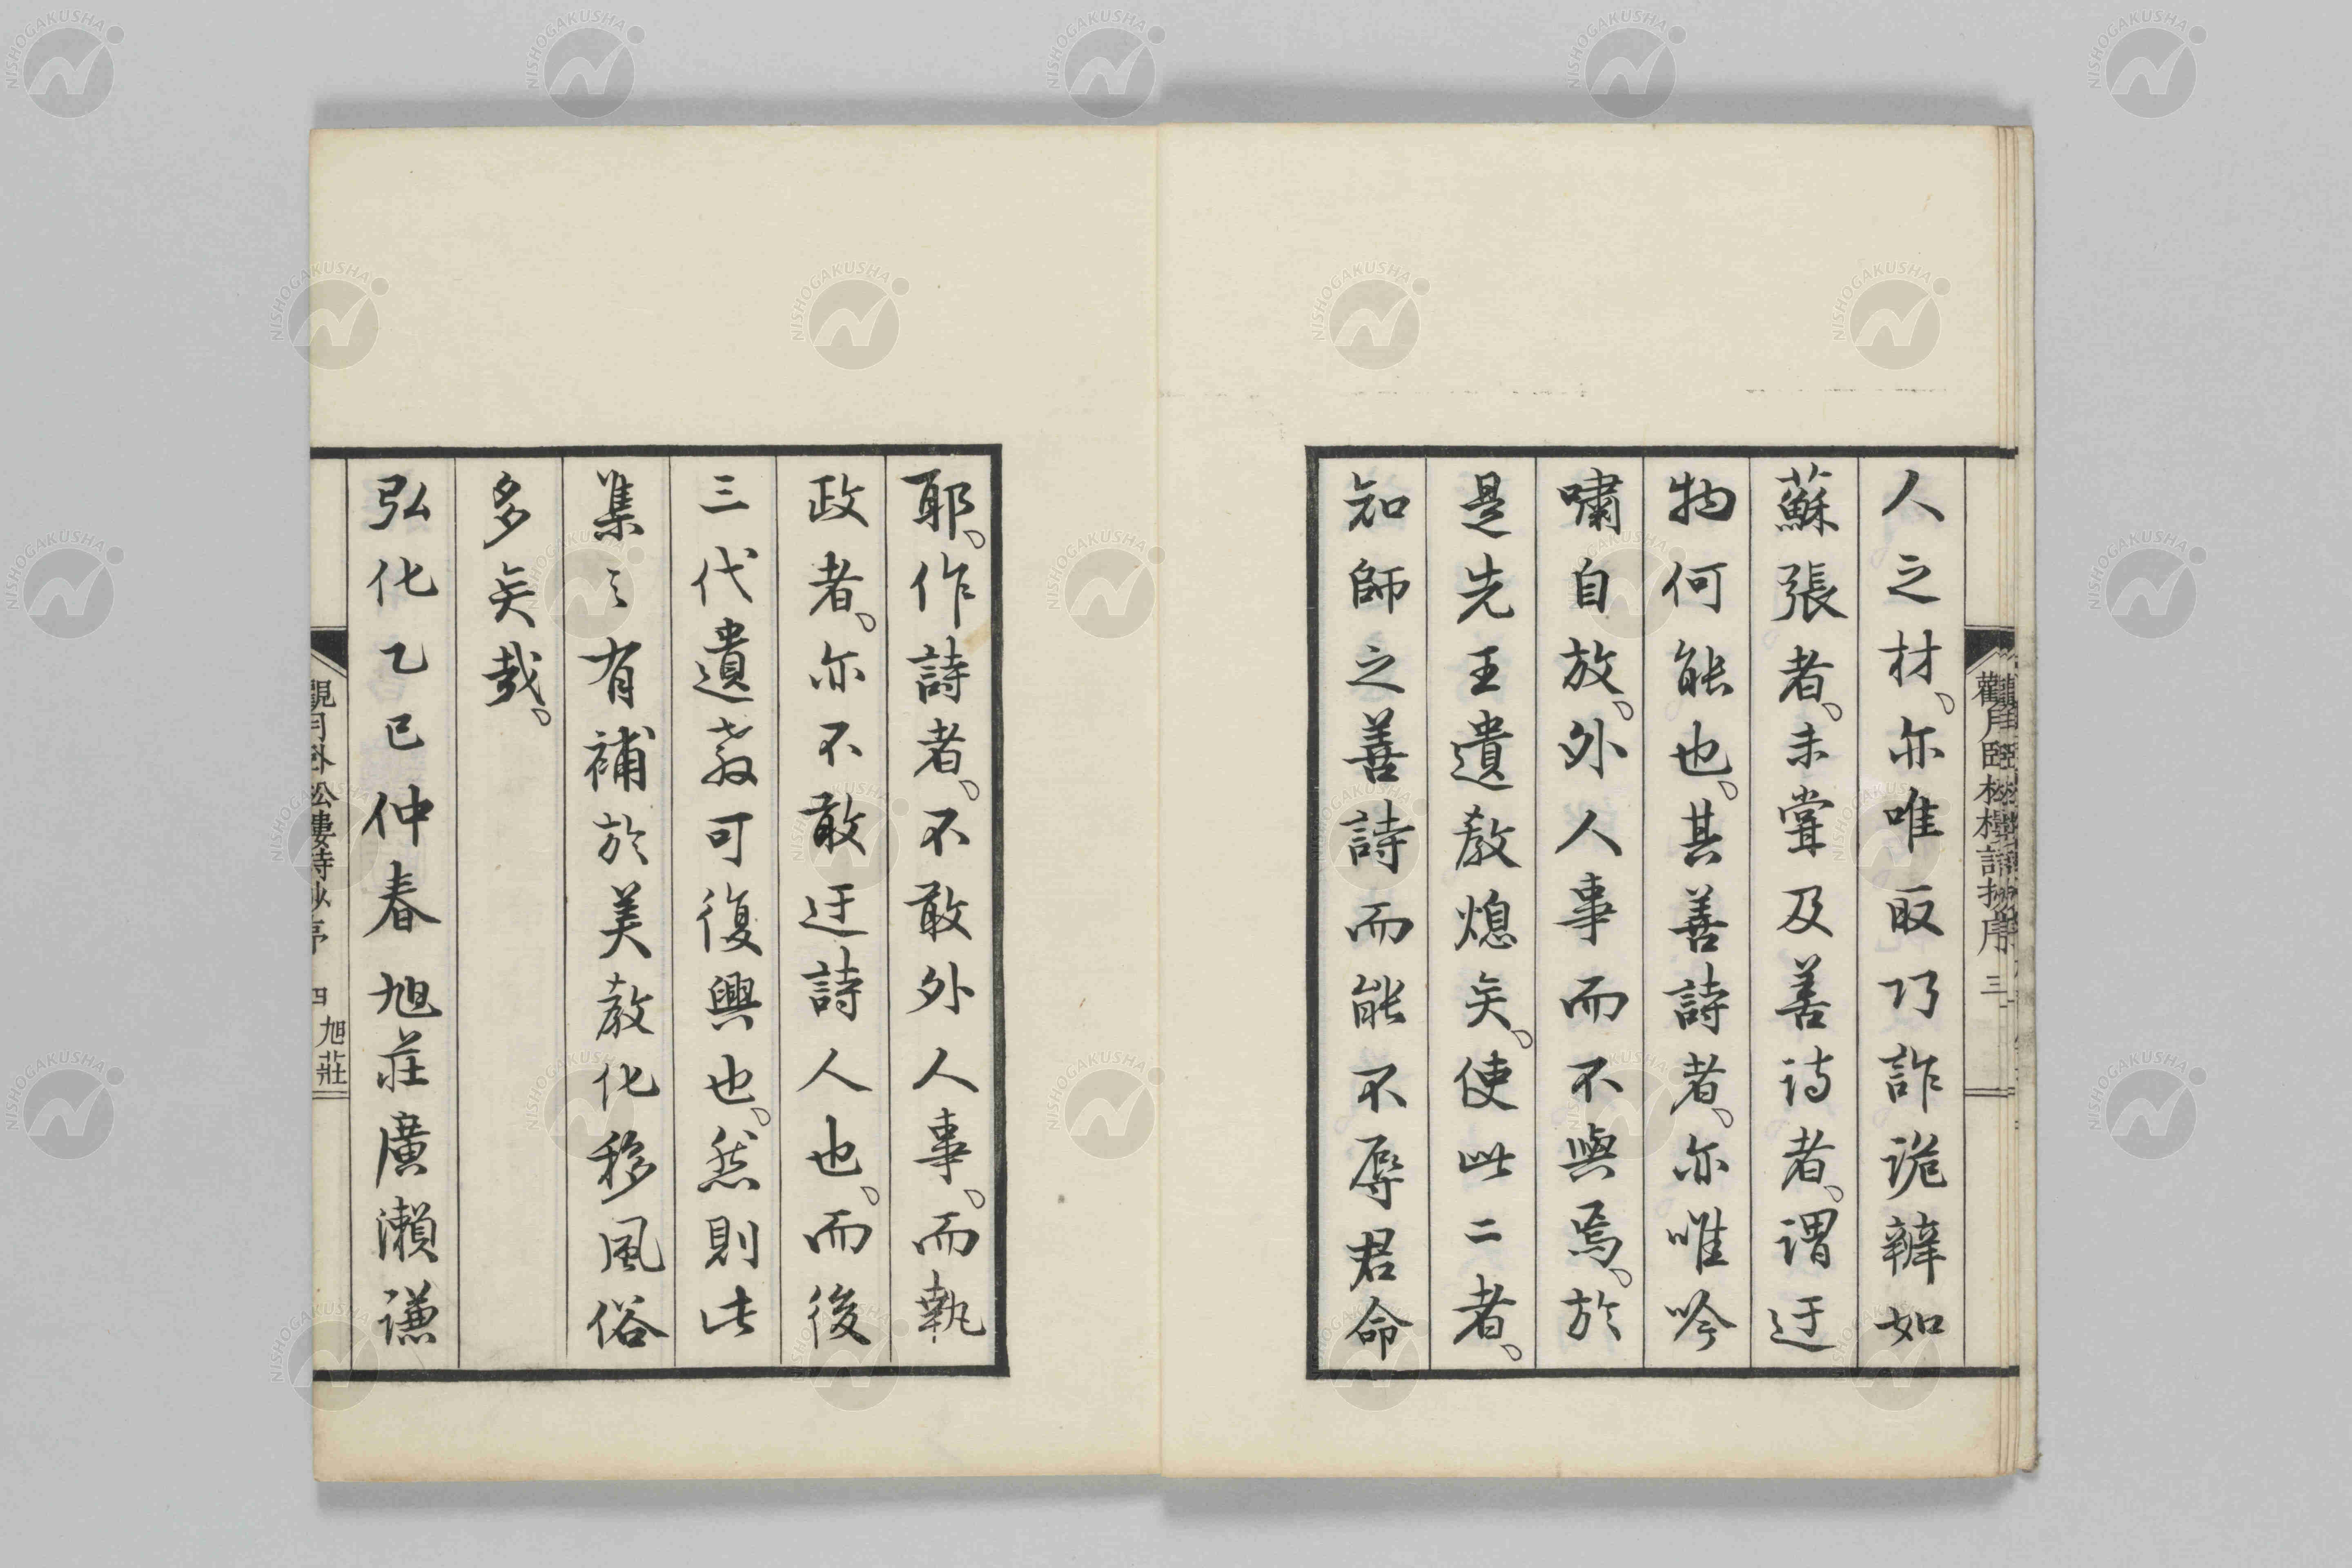 人之材。亦唯取巧詐詭辨如
蘇張者。未嘗及善詩者。謂迂
物何能也。其善詩者。亦唯吟
嘯自放。外人事而不與焉。於
是先王遺教熄矣。使此二者。
知師之善詩而能不辱君命
耶。作詩者。不敢外人事。而執
政者。亦不敢迂詩人也。而後
三代遺教可復興也。然則此
集之有補於美教化移風俗
多矣哉。
弘化乙巳仲春旭莊廣瀨謙
觀月臥松樓詩抄序 三
觀月臥松樓詩抄序 四 旭莊
NISHOGAKUSHA